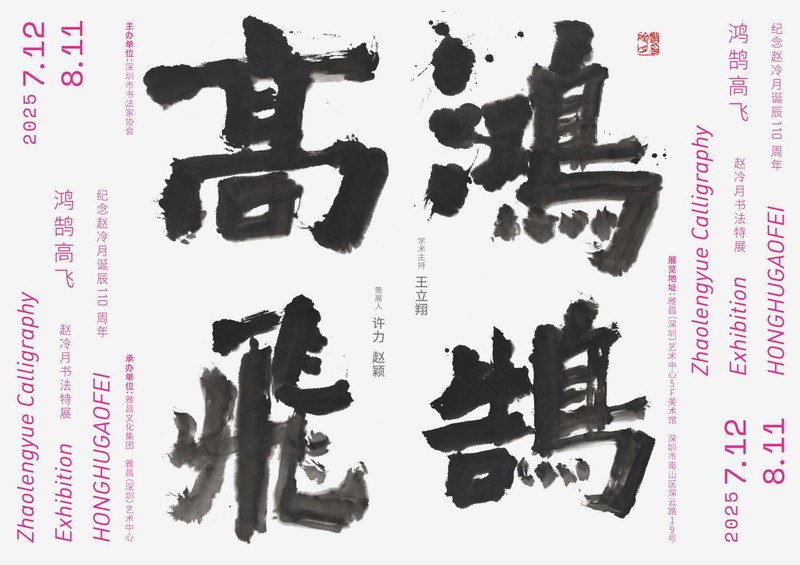 鴻
鵠
高
飛
纪念赵冷月诞辰110 周年
鸿鹄高飞
赵冷月书法特展
Zhaolengyue Calligraphy
Exhibition
HONGHUGAOFEI
2025 7.12
8.11
展览地址：雅昌（深圳）艺术中心5F美术馆 深圳市南山区深云路19号
学术主持 王立翔
策展人 许力 赵颖
主办单位：深圳市书法家协会
承办单位：雅昌文化集团 雅昌（深圳）艺术中心
2025 7.12
8.11
纪念赵冷月诞辰110 周年
鸿鹄高飞
赵冷月书法特展
Zhaolengyue Calligraphy
Exhibition
HONGHUGAOFEI